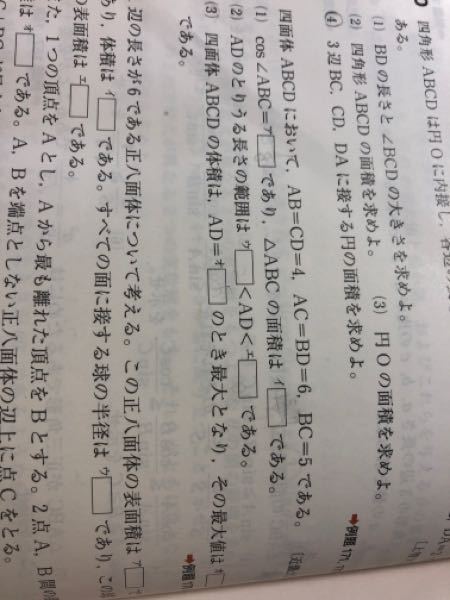 四角形 ABCD は円 O に内接し，
ある。
(1) BD の長さと ∠BCD の大きさを求めよ。
(2) 四角形 ABCD の面積を求めよ。 (3) 円 O の面積を求めよ。
(4) 3 辺 BC，CD，DA に接する円の面積を求めよ。
➡例題 171,
四面体 ABCD において，AB=CD=4，AC=BD=6，BC=5 である。
(1) cos∠ABC=ア□ であり，△ABC の面積は イ□ である。
(2) AD のとりうる長さの範囲は ウ□<AD<エ□ である。
(3) 四面体 ABCD の体積は，AD=オ□ のとき最大となり，その最大値は カ□
である。
➡例題 17
辺の長さが 6 である正八面体について考える。この正八面体の表面積は ア□
あり，体積は イ□ である。すべての面に接する球の半径は ウ□ であり，この
の表面積は エ□ である。
た，1 つの頂点を A とし，A から最も離れた頂点を B とする。2 点 A，B 間の
は オ□ である。A，B を端点としない正八面体の辺上に点 C をとる。